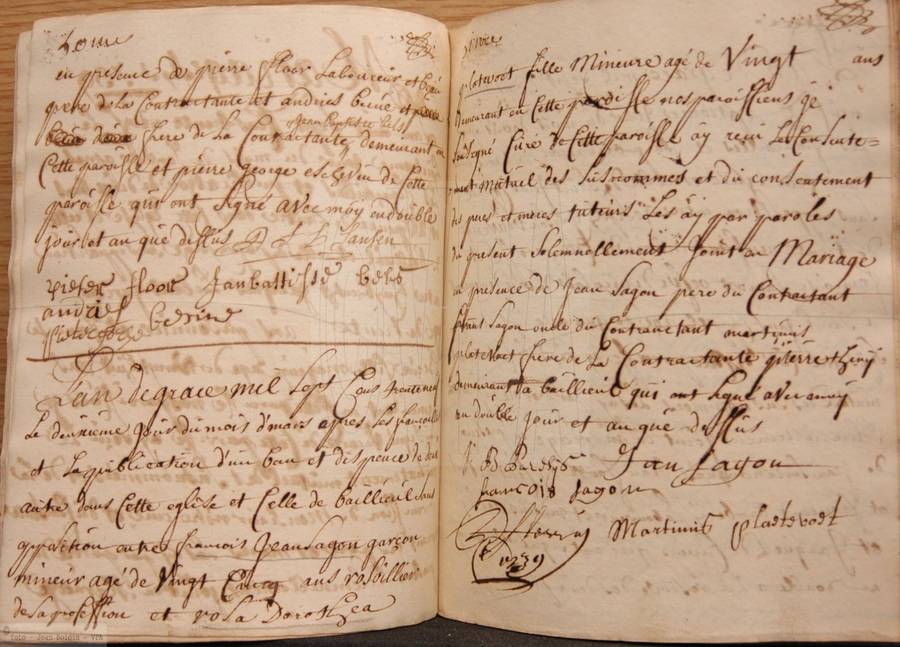 en presence de pierre floor Laboureur et beau
pere de la Contractante et andries becue et
frere de la Contractante demeurant en
jean baptiste bels
Cette paroisse et pierre george eschevin de Cette
paroisse qui ont signé avec moy en double
jour et an que dessus D L L Jansen
pieter floor Janbattiste bels
andries becuwe
L'an de grace mil sept Cens trente neuf
Le deuxieme jour du mois d'mars apres les fiancailles
et La publication d'un ban et dispence de deux
autre dans Cette eglise et Celle de bailliëul sans
opposition entre francois Jean Sagon garçon
mineur agé de Vingt Cincq ans
de sa profession et rosa Dorothea
platevoet fille Mineure agé de Vingt ans
Demeurant en Cette paroisse nos paroissiens je
soussigné Curé de Cette paroisse ay reçu Le Consente=
ment Mutuel des susnommés et du consentement
des peres et meres tuteurs Les ay par paroles
du present solemnellement Joint en Mariage
en presence de Jean Sagon pere du Contractant
francois Sagon oncle du Contractant martinus
platevoet frere de La Contractante
demeurant a baillieul qui ont signé avec moy
en double jour et an que dessus
Jan Sagon
francois Sagon
Martinus plaetevoet
1739
foto - Jean Boidin - VVA